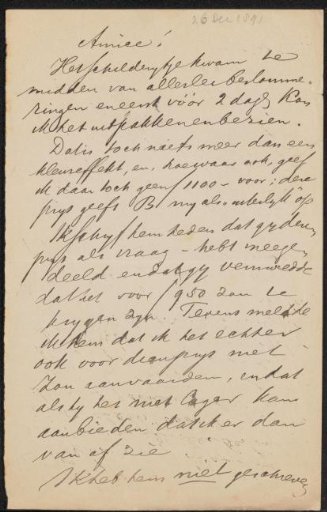 26 Dec 1891
Amice!
Het schilderijtje kwam te
midden van allerlei beslomme-
ringen en eerst vóór 2 dagen kon
ik het uitpakken en bezien.
Dat is toch niets meer dan een
kleureffekt, en, hoe waar ook, geef
ik daar toch geen f 1100 – voor; dien
prijs geeft B. mij als uiterlijk op
Ik schrijf hem heden dat gij dien
prijs als vraag – hebt meege-
deeld en dat gij vermoedde
dat het voor f 950 zou te
krijgen zijn. Tevens meldde
ik hem dat ik het echter
ook voor dien prijs niet
zou aanvaarden, en dat
als hij het niet lager kan
aanbieden dat ik er dan
van af zie
Ik heb hem niet geschreven